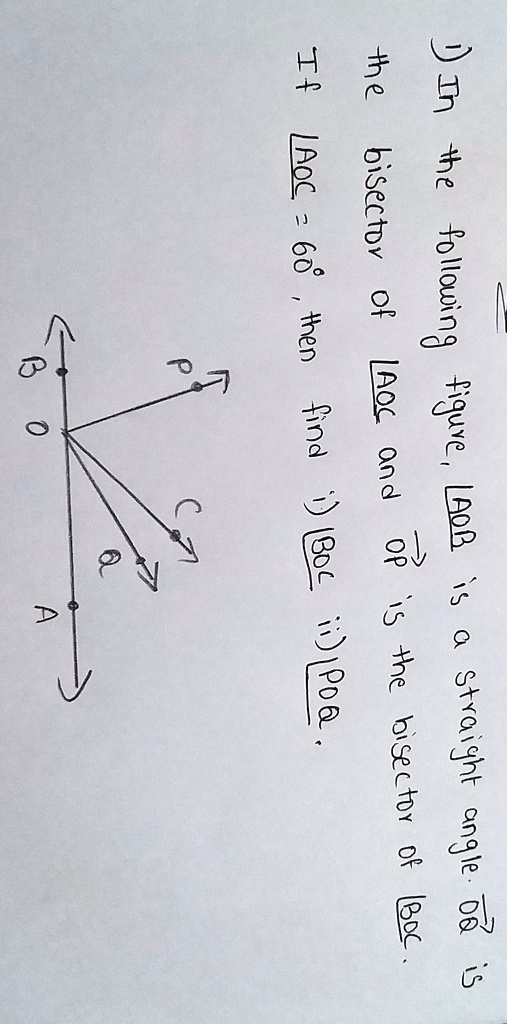 1) In the following figure, ∠AOB is a straight angle. OQ→ is
the bisector of ∠AOC and OP→ is the bisector of ∠BOC.
If ∠AOC = 60°, then find i) ∠BOC ii) ∠POQ.
P
C
Q
B
O
A